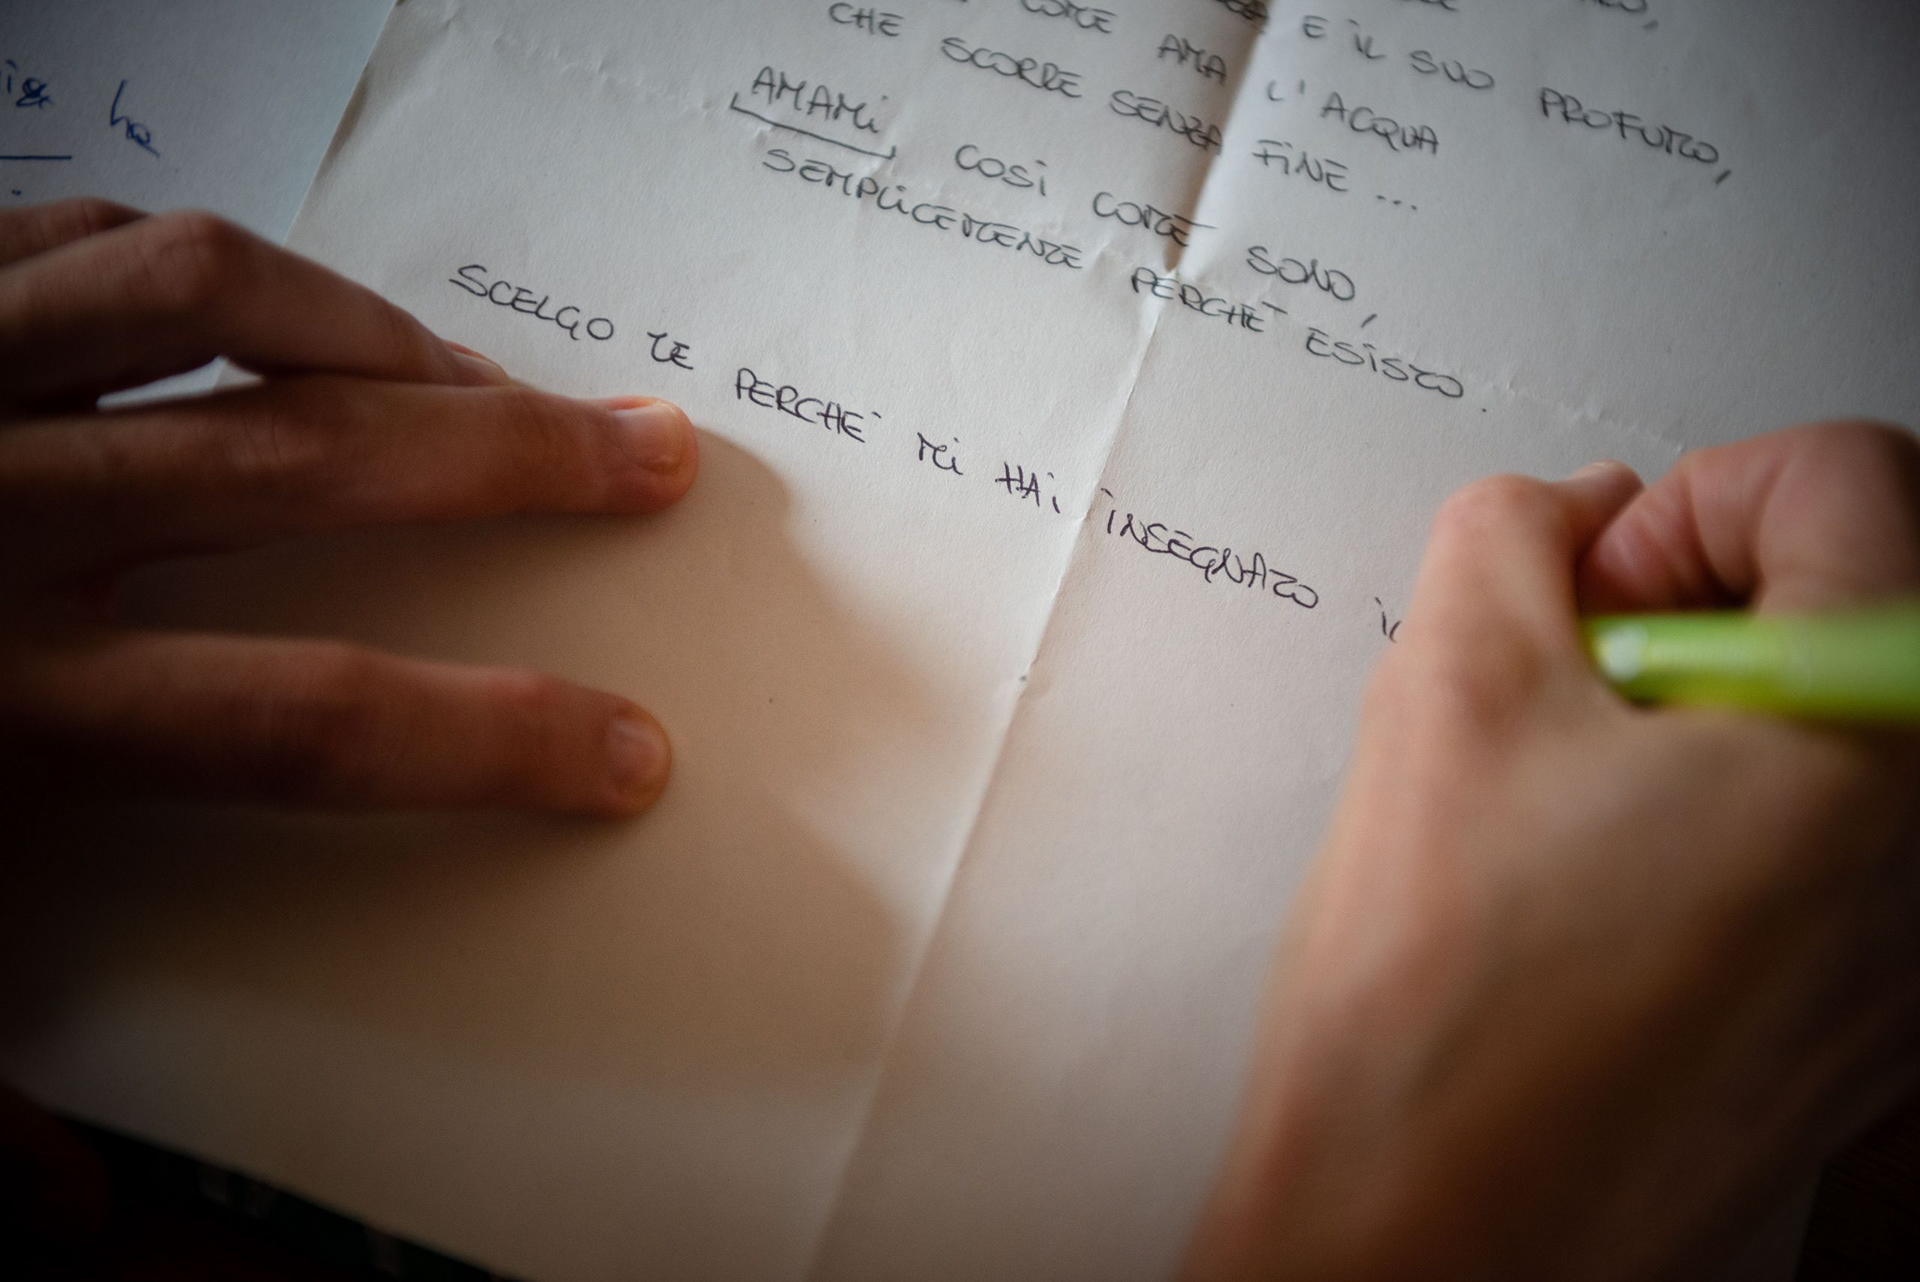 E IL SUO PROFUMO,
COME AMA L'ACQUA
CHE SCORRE SENZA FINE ...
AMAMI COSÌ COME SONO,
SEMPLICEMENTE PERCHÉ ESISTO.
SCELGO TE PERCHÉ MI HAI INSEGNATO
ha